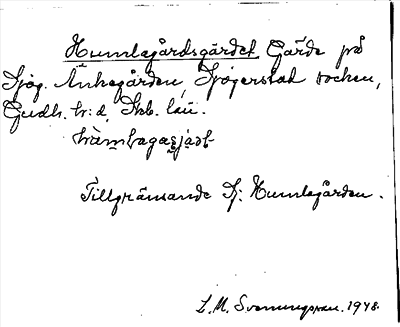 Humlegårdsgärdet Gärde på
Sjög. Änkegården, Sjögerstad socken,
Gudh. hr:d, Skb. län.
Tillgränsande Sj: Humlegården.
L. M. Svenningsson. 1948.